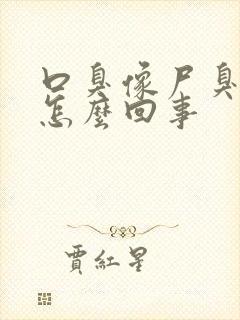 口臭像尸臭
怎麼回事
賈紅星